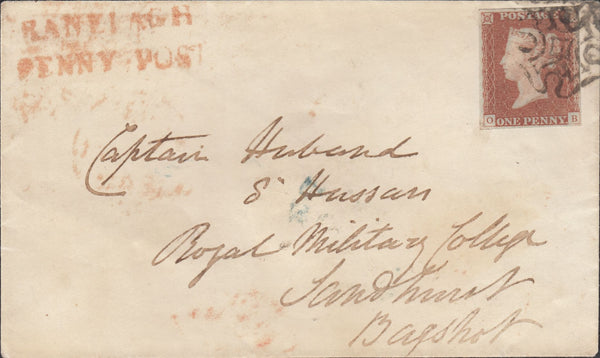 RANELAGH
PENNY POST
POSTAGE
O ONE PENNY B
Captain Huband
8th Hussars
Royal Military College
Sandhurst
Bagshot